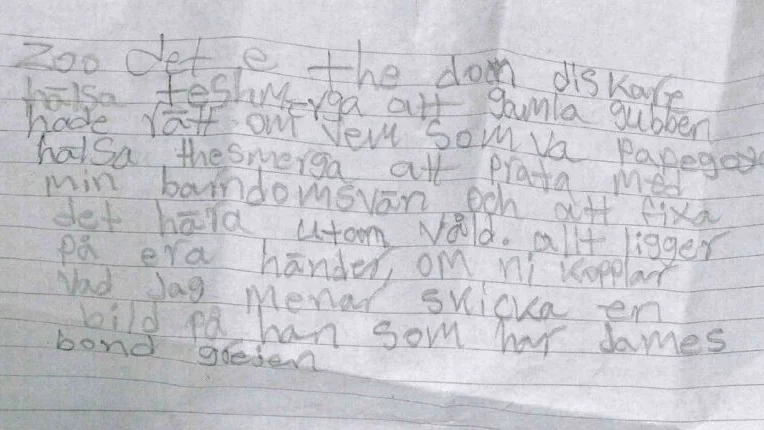 Zoo det e the dom diskare
hälsa teshmerga att gamla gubben
hade rätt om vem som va papegoja
halsa thesmerga att prata med
min barndomsvän och att fixa
det hära utom våld. allt ligger
på era händer, om ni kopplar
vad jag menar skicka en
bild på han som har James
bond grejen